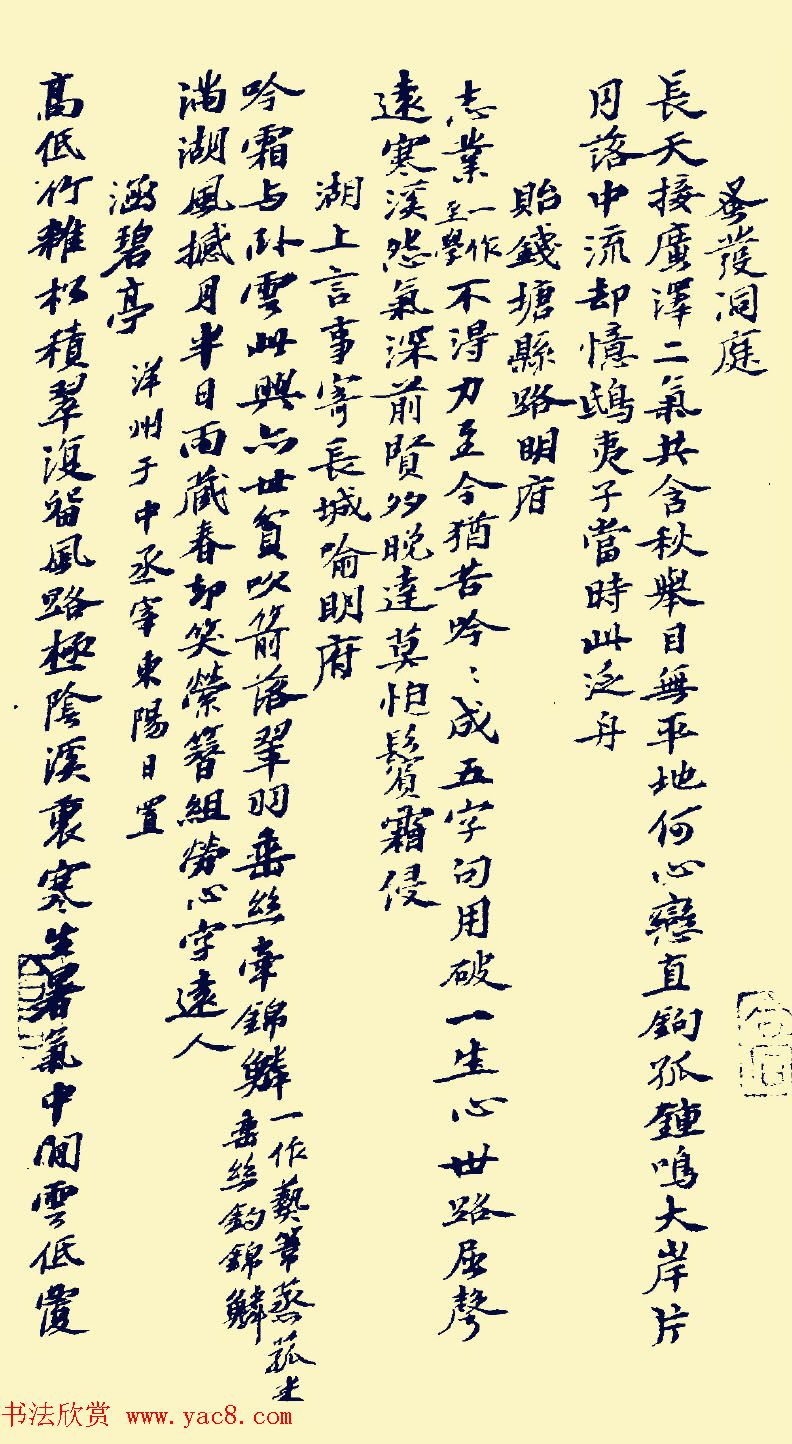 蚤發洞庭
長天接廣澤二氣共含秋舉目無平地何心戀直鉤孤鍾鳴大岸片
月落中流却憶鴟夷子當時此泛舟
貽錢塘縣路明府
志業一作至學不得力至今猶苦吟〻成五字句用破一生心世路屈聲
遠寒溪怨氣深前賢多晚達莫怕鬢霜侵
湖上言事寄長城喻明府
吟霜与卧雲此興亦甘貧吹箭落翠羽垂絲牽錦鱗一作藝葦蒸菰米垂絲釣錦鱗
满湖風撼月半日雨藏春却笑縈簪組勞心字遠人
涵碧亭 洋州于中丞宰東陽日置
高低竹雜松積翠復留風路極陰溪裏寒生暑氣中閒雲低覆
书法欣赏 www.yac8.com